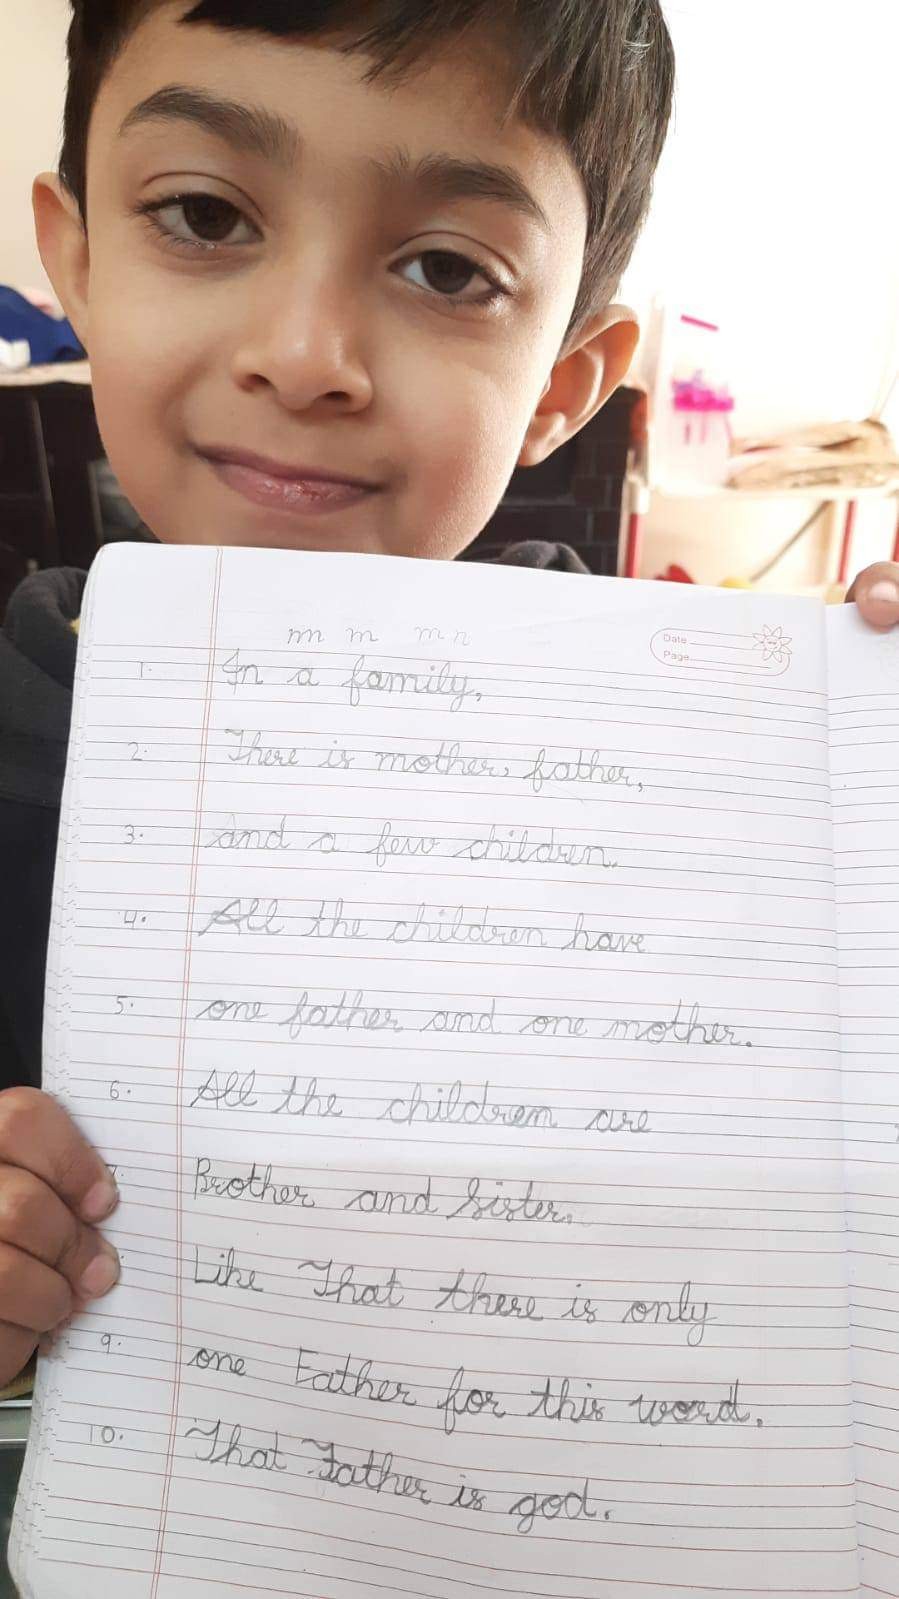 m m m n
Date
Page
1. In a family,
2. There is mother, father,
3. And a few children.
4. All the children have
5. one father and one mother.
6. All the children are
Brother and Sister.
Like That there is only
9. one Father for this word.
10. That Father is god.